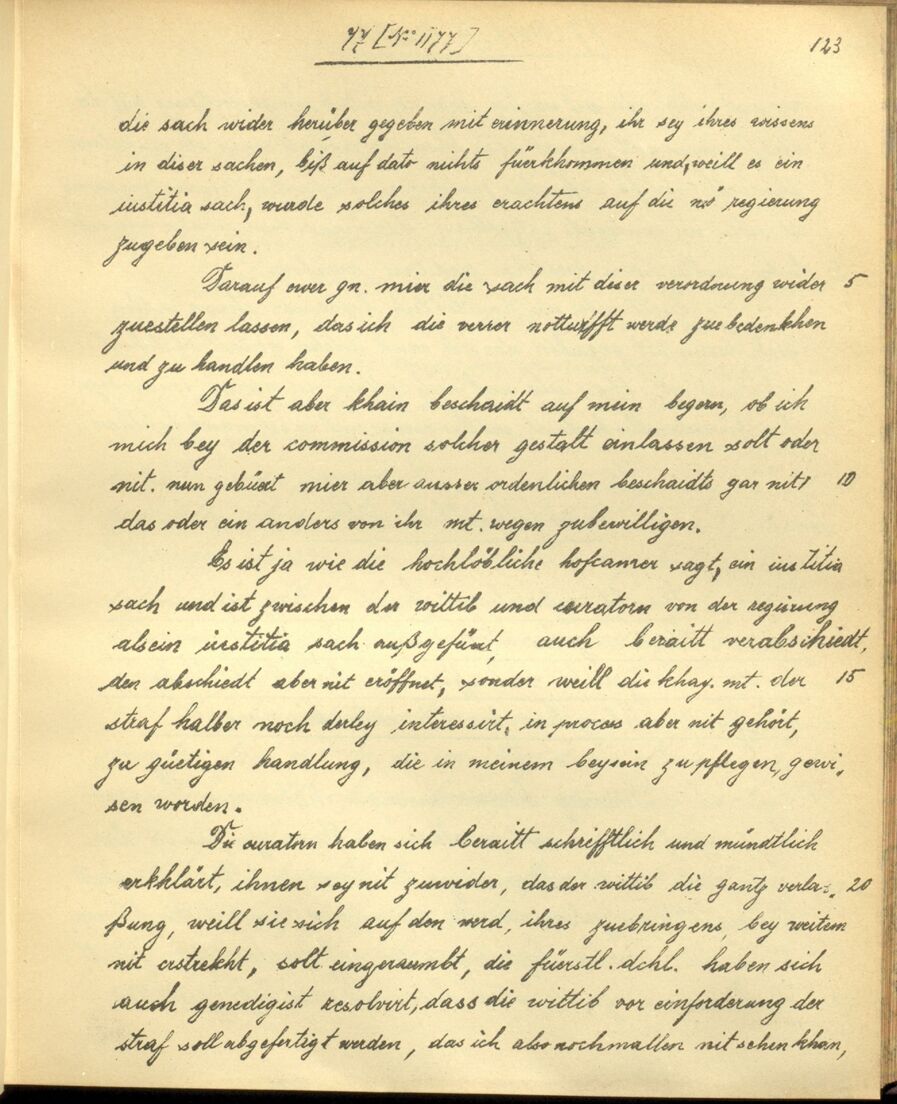 [No 1177]
123
die sach wider herüber gegeben mit erinnerung, ihr sey ihres wissens
in diser sachen, biß auf dato nichts fürkhommen und, weill es ein
iustitia sach, wurde solches ihres erachtens auf die nö regierung
zugeben sein.
Darauf ewer gn. mier die sach mit diser verordnung wider 5
zuestellen lassen, das ich die verrer notturfft werde zue bedenkhen
und zu handlen haben.
Das ist aber khain beschaidt auf mein begern, ob ich
mich bey der commission solcher gestalt einlassen solt oder
nit. nun gebüert mier aber ausser ordenlichen beschaidts gar nit, 10
das oder ein anders von ihr mt. wegen zubewilligen.
Es ist ja wie die hochlöbliche hofcamer sagt, ein iustitia
sach und ist zwischen der wittib und curatorn von der regierung
als ein iustitia sach außgefüert, auch beraitt verabschiedt,
den abschiedt aber nit eröffnet, sonder weill die khay. mt. der 15
straf halber noch derley interessirt, in process aber nit gehört,
zu güetigen handlung, die in meinem beysein zu pflegen, gewi-
sen worden.
Die curatorn haben sich beraitt schrifftlich und mündtlich
erkhlärt, ihnen sey nit zuwider, das der wittib die gantz verla- 20
ßung, weill sie sich auf den werd, ihres zuebringens, bey weitem
nit erstrekht, solt eingeraumbt, die fürstl. dchl. haben sich
auch genedigist resolvirt, dass die wittib vor einforderung der
straf soll abgefertigt werden, das ich also nochmallen nit sehen khan,